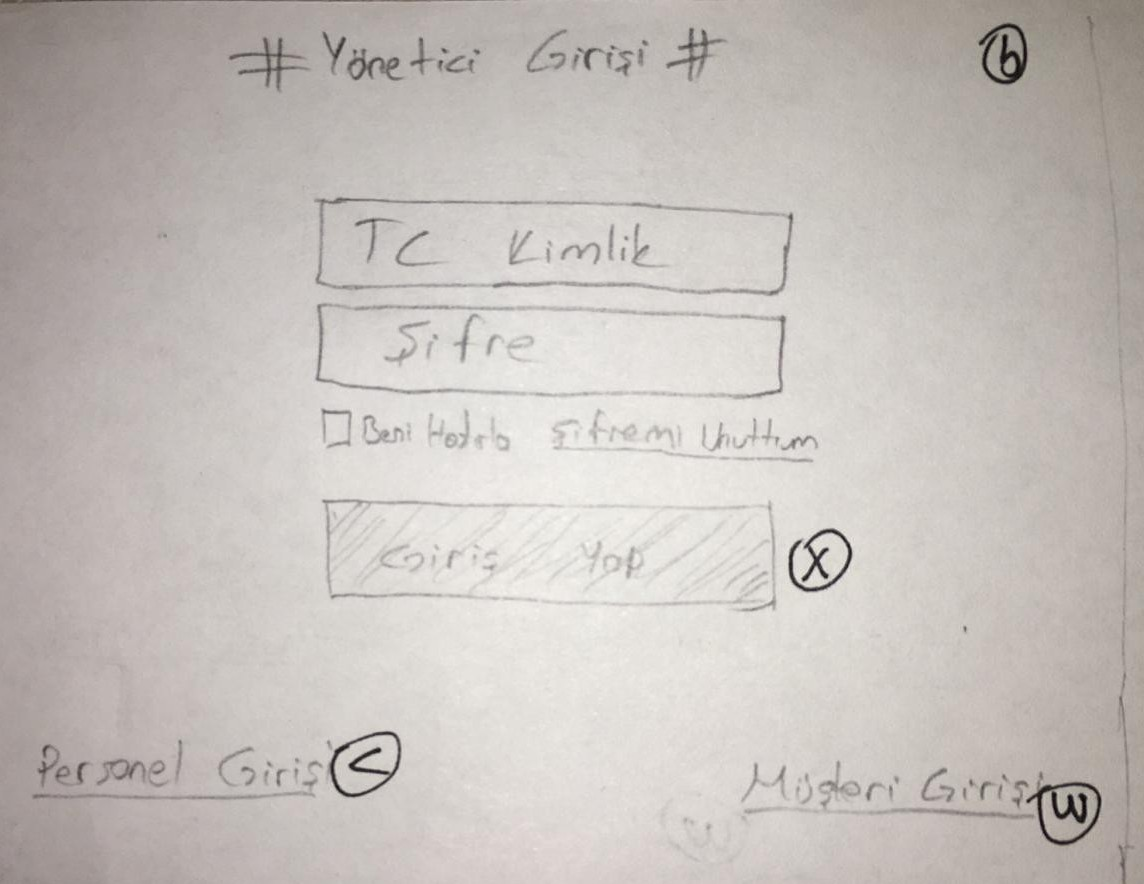 # Yönetici Girişi # b
TC Kimlik
Şifre
Beni Hatırla Şifremi Unuttum
Giriş Yap X
Personel Girişi <
Müşteri Girişi W
W